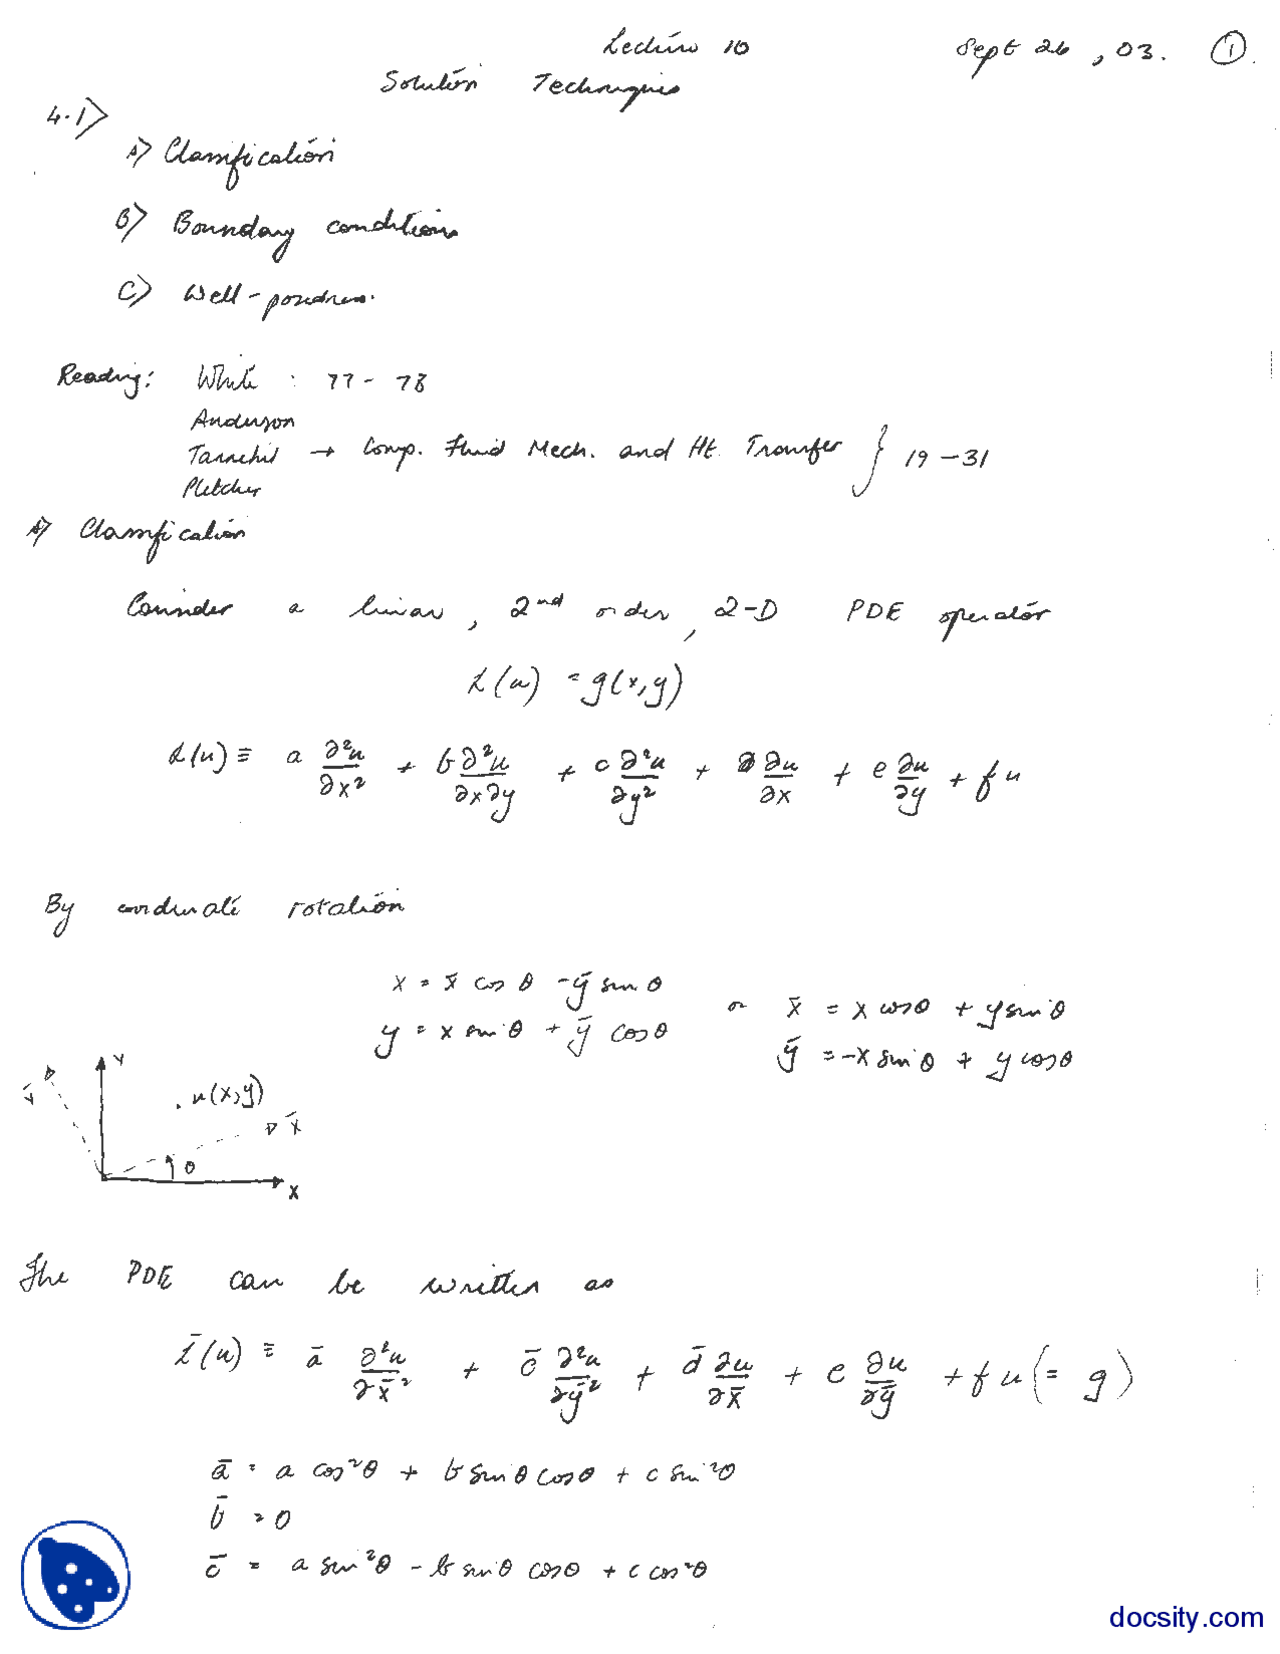 Lecture 10 Sept 26, 03. ①
Solution Techniques
4.1>
A> Classification
B> Boundary conditions
C> Well-posedness.
Reading: White : 77-78
Anderson
Tannehil → Comp. Fluid Mech. and Ht. Transfer } 19-31
Pletcher
A> Classification
Consider a linear, 2nd order, 2-D PDE operator
L(u) = g(x,y)
L(u) ≡ a ∂²u/∂x² + b ∂²u/∂x∂y + c ∂²u/∂y² + d ∂u/∂x + e ∂u/∂y + f u
By coordinate rotation
x = x̄ cos θ - ȳ sin θ
y = x sin θ + ȳ cos θ
or x̄ = x cos θ + y sin θ
ȳ = -x sin θ + y cos θ
Y
Ȳ
. u(x,y)
X̄
θ
X
The PDE can be written as
L̄(u) ≡ ā ∂²u/∂x̄² + c̄ ∂²u/∂ȳ² + d̄ ∂u/∂x̄ + e ∂u/∂ȳ + f u (= g)
ā = a cos²θ + b sin θ cos θ + c sin²θ
b̄ = 0
c̄ = a sin²θ - b sin θ cos θ + c cos²θ
docsity.com